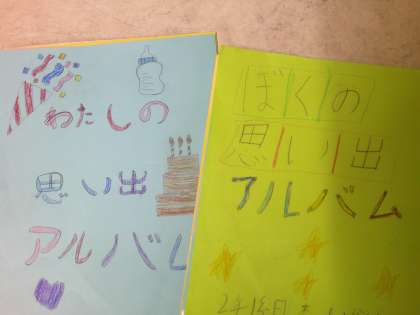 わたしの
思い出
アルバム
ぼくの
思い出
アルバム